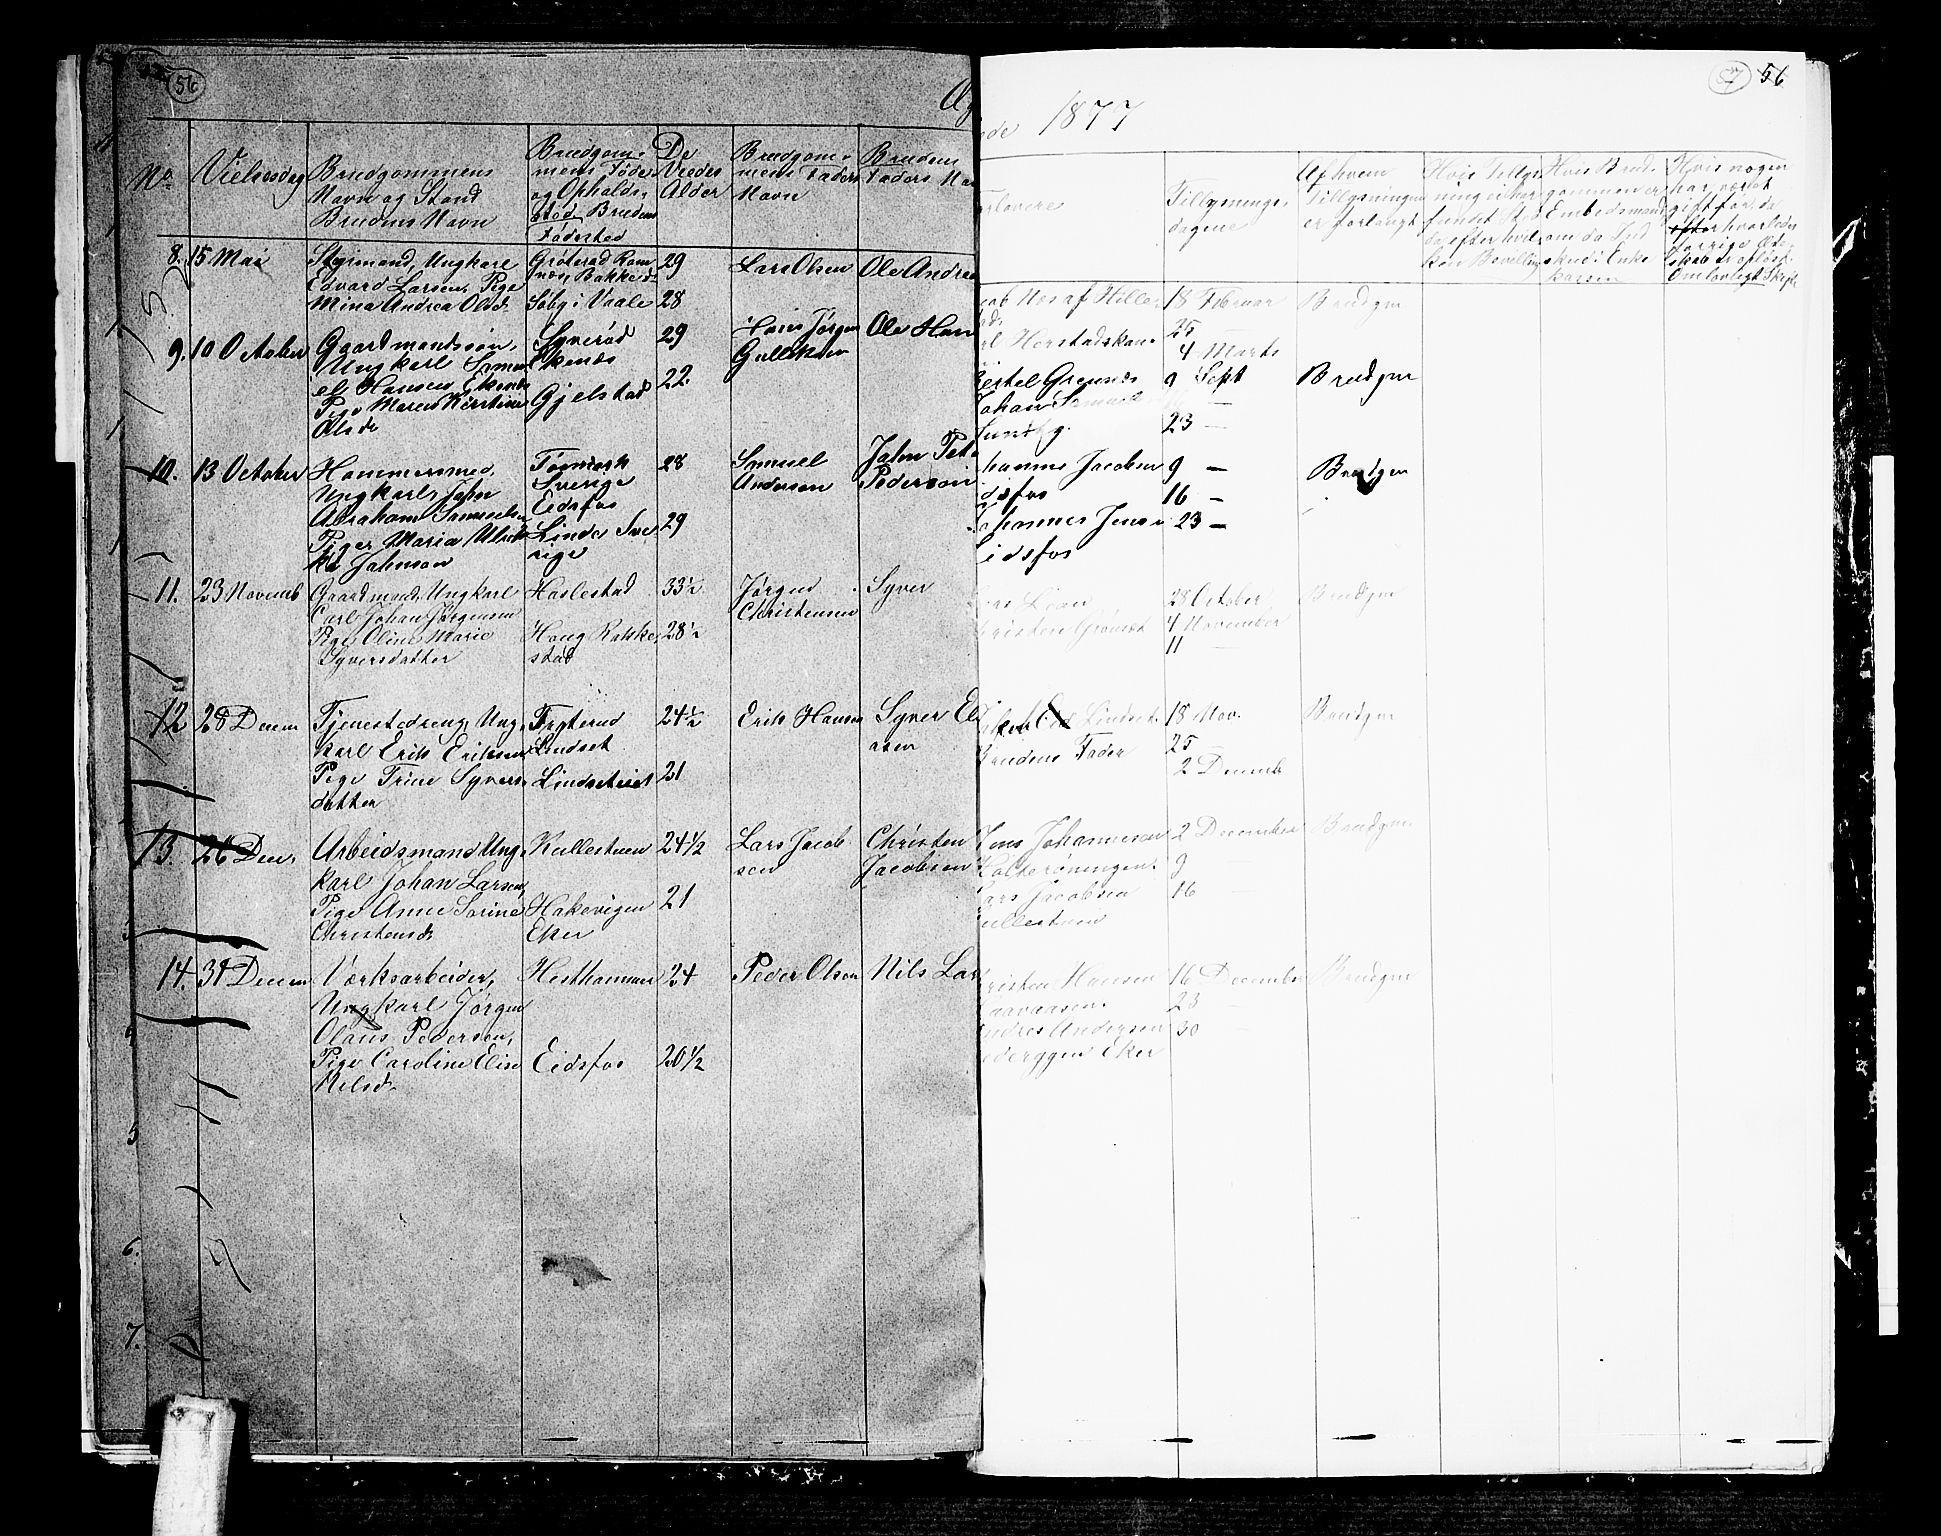 56
No
Vielsesdag
Brudgommens
Navn og Stand
Brudens Navn
Brudgom-
mens Føde-
og Opholds-
sted, Brudens
Fødested
De
Viedes
Alder
Brudgom-
mens Faders
Navn
Brudens
Faders Na
8. 15 Mai
Styrmand, Ungkarl
Edvard Larsen, Pige
Mina Andrea Olsd.
Sæby i Vaale
29
28
Lars Olsen
Ole Andrea
9. 10 October
Gaardmandssøn,
Ungkarl
Hansen Ekenæs
Pige Maren Kirstine
Olsd
Ekenæs
Gjelstad
29
22.
Hans Jørgen
Gulliksen
Ole Han
10. 13 October
Hammersmed,
Ungkarl John
Abraham Samuelsen
Pige Maria Ulrik
ka Johnson
Sverige
Eidsfos
Linde Sve
rige
28
29
Samuel
Anderson
John Pet
Pederson
11. 23 Novemb
Gaardmand, Ungkarl
Carl Johan Jørgensen
Pige Oline Marie
Syversdatter
Haslestad
Haug Ramme
stad
33½
28½
Jørgen
Christensen
Syver
12 28 Decem
Tjenestedreng, Ung
karl Erik Eriksen
Pige Trine Syvers
datter
Frøterud
Lindset
Lindseteiet
24½
21
Erik Hansen
Syver El
asen
13. 26 Dec.
Arbeidsmand Ung
karl Johan Larsen,
Pige Anne Sørine
Christensd.
Kullestuen
Hakavigen
Eker
24½
21
Lars Jacob
sen
Christen
Jacobsen
14. 31 Decem
Værksarbeider,
Ungkarl Jørgen
Olaus Pedersen,
Pige Caroline Elise
Nilsd.
Hesthammer
Eidsfos
24
20½
Peder Olsen
Nils Lar
5
6.
7.
57 56
de 1877
orlovere
Tillysnings-
dagene
Af hvem
Tillysningen
er forlangt
Hvis Tillys-
ning ei har
fundet Sted
da efter hvil-
ken Bevilling
Hvis Brud-
gommen er
Embedsmand
om da Ind
skud i Enke
kassen
Hvis nogen
har været
gift før, da
hvorledes
forrige Ægte
skab er opløst
Om lovligt Skifte
cob Næs af Hille-
18 Februar
25
4 Marts
Brudgm
Johan Samuel
Sundby.
9 Sept
16 —
23 —
Brudgm
hannes Jacobsen
idsfos
hannes Jens
idsfos
9 —
16 —
23 —
Brudgm
ars Lian
hristen Grønset
28 October
4 November
11 —
Brudgm
Lindset.
Brudens Fader
18 Nov.
25 —
2 Decemb
Brudgm
Hans Johannesen
Holterøningen.
ars Jacobsen
ullestuen
2 December
9 —
16 —
Brudgm.
risten Hansen
aavaasen.
ndres Andersen
ederggen Eker
16 December
23 —
30 —
Brudgm